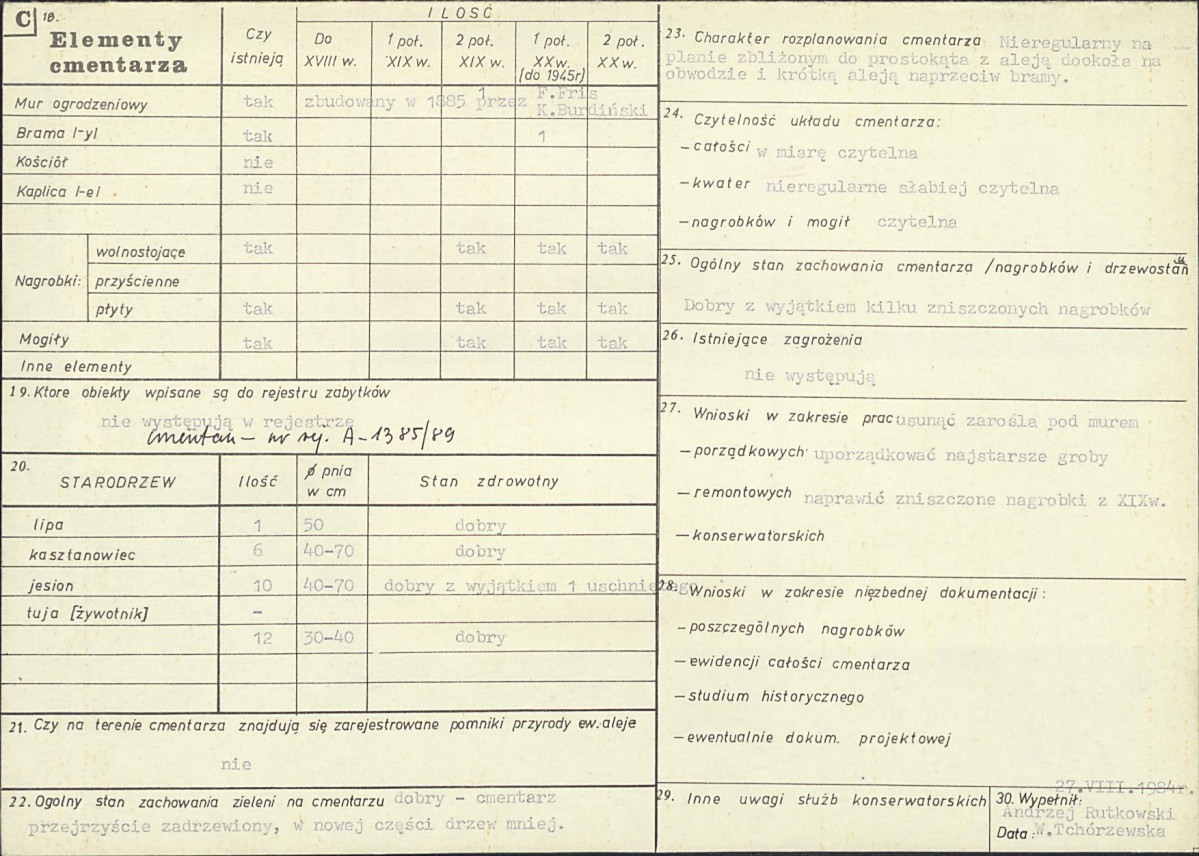 C 18.
Elementy
cmentarza
Czy
istnieją
ILOŚĆ
Do
XVIII w.
1 poł.
XIX w.
2 poł.
XIX w.
1 poł.
XX w.
(do 1945r)
2 poł.
XX w.
Mur ogrodzeniowy tak zbudowany w 1885 przez F.Fris
1 K.Burdiński
Brama I-yl tak 1
Kościół nie
Kaplica I-el nie
Nagrobki: wolnostojące tak tak tak tak
przyścienne
płyty tak tak tak tak
Mogiły tak tak tak tak
Inne elementy
19. Ktore obiekty wpisane są do rejestru zabytków
nie występują w rejestrze
cmentarz – nr rej. A-1385/89
20.
STARODRZEW Ilość ø pnia
w cm
Stan zdrowotny
lipa 1 50 dobry
kasztanowiec 6 40-70 dobry
jesion 10 40-70 dobry z wyjątkiem 1 uschniętego
tuja [żywotnik] -
12 30-40 dobry
21. Czy na terenie cmentarza znajdują się zarejestrowane pomniki przyrody ew. aleje
nie
22. Ogolny stan zachowania zieleni na cmentarzu dobry - cmentarz
przejrzyście zadrzewiony, w nowej części drzew mniej.
23. Charakter rozplanowania cmentarza Nieregularny na
planie zbliżonym do prostokąta z aleją dookoła na
obwodzie i krótką aleją naprzeciw bramy.
24. Czytelność układu cmentarza:
- całości w miarę czytelna
- kwater nieregularne słabiej czytelna
- nagrobków i mogił czytelna
25. Ogólny stan zachowania cmentarza /nagrobków i drzewostan
Dobry z wyjątkiem kilku zniszczonych nagrobków
26. Istniejące zagrożenia
nie występują
27. Wnioski w zakresie prac usunąć zarośla pod murem
- porządkowych uporządkować najstarsze groby
- remontowych naprawić zniszczone nagrobki z XIXw.
- konserwatorskich
28. Wnioski w zakresie nięzbednej dokumentacji:
- poszczególnych nagrobków
- ewidencji całości cmentarza
- studium historycznego
- ewentualnie dokum. projektowej
29. Inne uwagi służb konserwatorskich
27.VIII.1984r.
30. Wypełnił:
Andrzej Rutkowski
Data: W.Tchórzewska